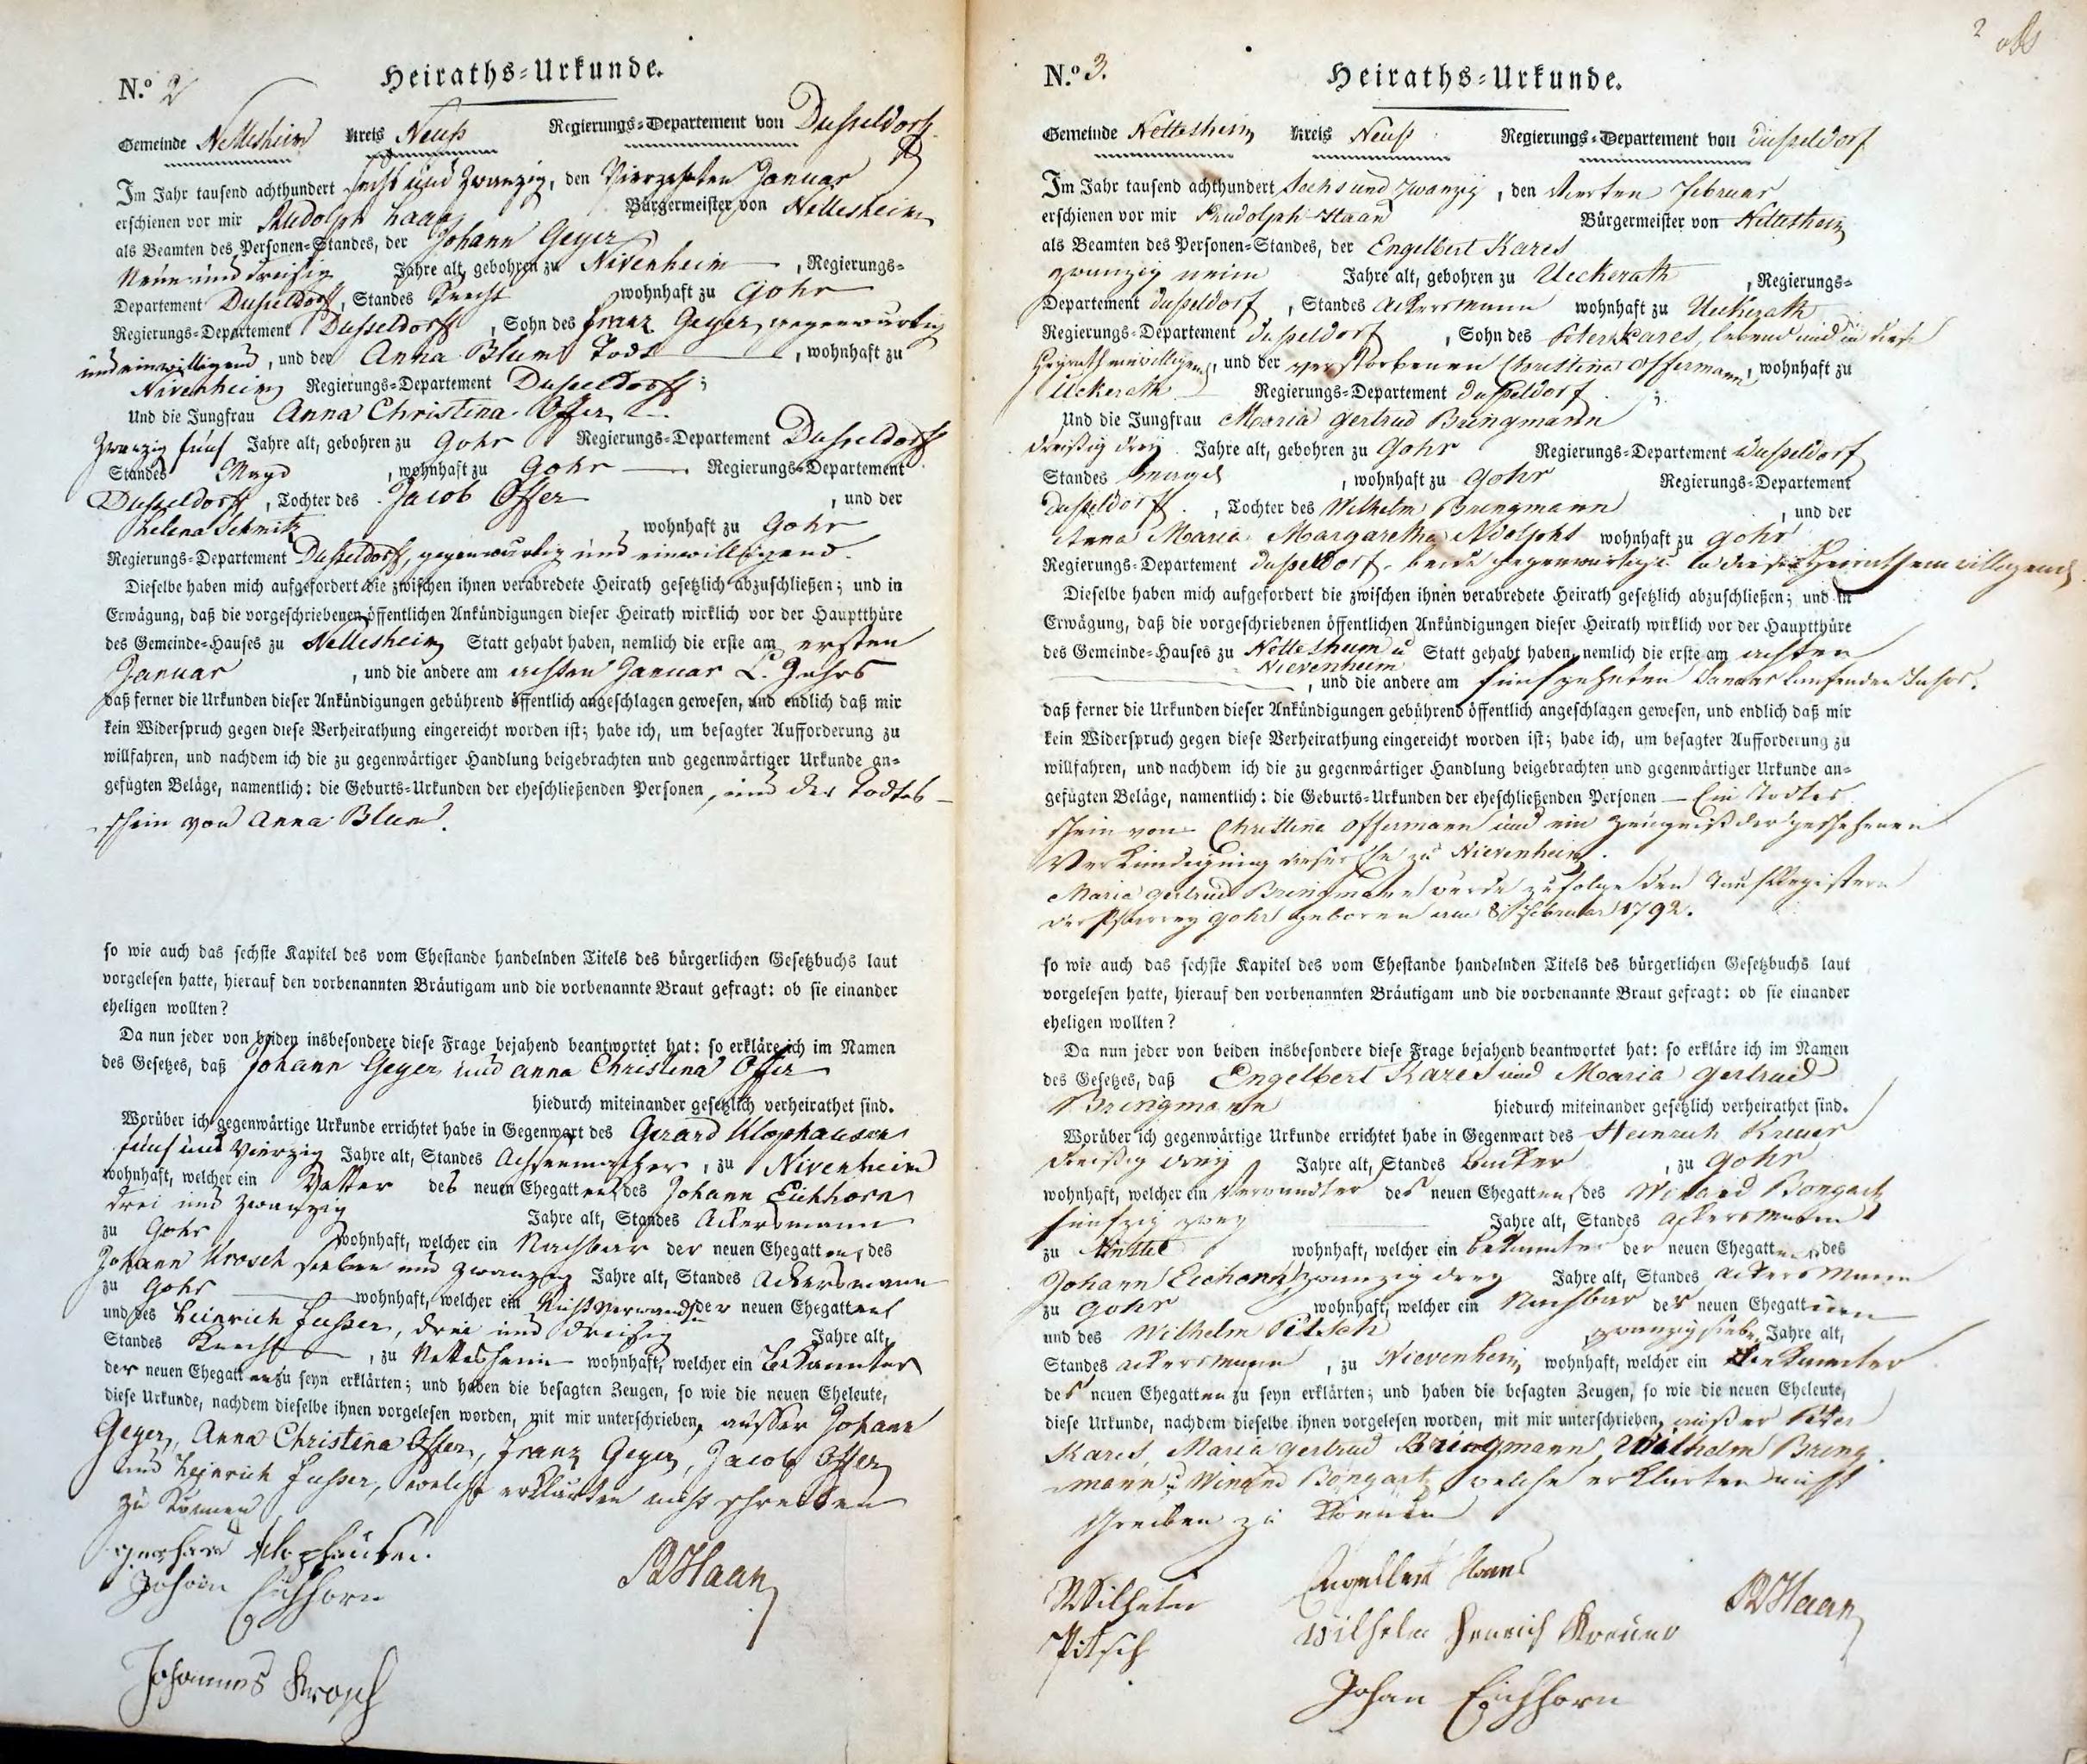 N.º 2
Heiraths-Urkunde.
Gemeinde Nettesheim Kreis Neuß Regierungs-Departement von Dusseldorf
Im Jahr tausend achthundert sechs und zwanzig, den Vierzehnten Januar
erschienen vor mir Rudolph Haan Bürgermeister von Nettesheim
als Beamten des Personen-Standes, der Johann Geyer
Neun und dreißig Jahre alt, gebohren zu Nivenheim, Regierungs-
Departement Dusseldorf, Standes Knecht wohnhaft zu Gohr
Regierungs-Departement Dusseldorf, Sohn des Franz Geyer gegenwärtig
und einwilligend, und der Anna Blum Todt, wohnhaft zu
Nivenheim Regierungs-Departement Dusseldorf;
Und die Jungfrau Anna Christina Offer
zwanzig fünf Jahre alt, gebohren zu Gohr Regierungs-Departement Dusseldorf
Standes Magd, wohnhaft zu Gohr Regierungs-Departement
Dusseldorf, Tochter des Jacob Offer, und der
Helena Schmitz wohnhaft zu Gohr
Regierungs-Departement Dusseldorf, gegenwärtig und einwilligend.
Dieselbe haben mich aufgefordert die zwischen ihnen verabredete Heirath gesetzlich abzuschließen; und in
Erwägung, daß die vorgeschriebenen öffentlichen Ankündigungen dieser Heirath wirklich vor der Hauptthüre
des Gemeinde-Hauses zu Nettesheim Statt gehabt haben, nemlich die erste am ersten
Januar, und die andere am achten Januar l. Jahrs
daß ferner die Urkunden dieser Ankündigungen gebührend öffentlich angeschlagen gewesen, und endlich daß mir
kein Widerspruch gegen diese Verheirathung eingereicht worden ist; habe ich, um besagter Aufforderung zu
willfahren, und nachdem ich die zu gegenwärtiger Handlung beigebrachten und gegenwärtiger Urkunde an-
gefügten Beläge, namentlich: die Geburts-Urkunden der eheschließenden Personen, und der Todtes-
schein von Anna Blum.
so wie auch das sechste Kapitel des vom Ehestande handelnden Titels des bürgerlichen Gesetzbuchs laut
vorgelesen hatte, hierauf den vorbenannten Bräutigam und die vorbenannte Braut gefragt: ob sie einander
eheligen wollten?
Da nun jeder von beiden insbesondere diese Frage bejahend beantwortet hat: so erkläre ich im Namen
des Gesetzes, daß Johann Geyer und Anna Christina Offer
hiedurch miteinander gesetzlich verheirathet sind.
Worüber ich gegenwärtige Urkunde errichtet habe in Gegenwart des Gerard Klophausen
fünf und Vierzig Jahre alt, Standes Achsenmacher, zu Nivenheim
wohnhaft, welcher ein Vetter des neuen Ehegatten, des Johann Eichhorn
drei und zwanzig Jahre alt, Standes Ackersmann
zu Gohr wohnhaft, welcher ein Nachbar der neuen Ehegatten, des
Johann Krosch sieben und zwanzig Jahre alt, Standes Ackersmann
zu Gohr wohnhaft, welcher ein Nichtverwandter der neuen Ehegatten
und des Heinrich Fusser, drei und dreißig Jahre alt,
Standes Knecht, zu Nettesheim wohnhaft, welcher ein Bekannter
der neuen Ehegatten zu seyn erklärten; und haben die besagten Zeugen, so wie die neuen Eheleute,
diese Urkunde, nachdem dieselbe ihnen vorgelesen worden, mit mir unterschrieben, ausser Johann
Geyer, Anna Christina Offer, Franz Geyer, Jacob Offer
und Heinrich Fusser, welche erklärten nicht schreiben
zu können
Gerhard Klophausen.
Johann Eichhorn
RHaan
Johannes Krosch
2
N.º 3.
Heiraths-Urkunde.
Gemeinde Nettesheim Kreis Neuß Regierungs-Departement von Dusseldorf
Im Jahr tausend achthundert Sechs und zwanzig, den Vierten Februar
erschienen vor mir Rudolph Haan Bürgermeister von Nettesheim
als Beamten des Personen-Standes, der Engelbert Kares
zwanzig neun Jahre alt, gebohren zu Ueckerath, Regierungs-
Departement Dusseldorf, Standes Ackersmann wohnhaft zu Ueckerath
Regierungs-Departement Dusseldorf, Sohn des Peter Kares, lebend und in diese
Heyrath einwilligend, und der verstorbenen Christina Offermann, wohnhaft zu
Uckerath Regierungs-Departement Dusseldorf;
Und die Jungfrau Maria Gertrud Bringmann
dreißig drey Jahre alt, gebohren zu Gohr Regierungs-Departement Dusseldorf
Standes Magd, wohnhaft zu Gohr Regierungs-Departement
Dusseldorf, Tochter des Wilhelm Bringmann, und der
Anna Maria Margaretha Adolphs wohnhaft zu Gohr
Regierungs-Departement Dusseldorf, beide gegenwärtig u in diese Heirath einwilligend
Dieselbe haben mich aufgefordert die zwischen ihnen verabredete Heirath gesetzlich abzuschließen; und in
Erwägung, daß die vorgeschriebenen öffentlichen Ankündigungen dieser Heirath wirklich vor der Hauptthüre
des Gemeinde-Hauses zu Nettesheim u Statt gehabt haben, nemlich die erste am achten
Nievenheim, und die andere am fünfzehnten Januar laufenden Jahrs.
daß ferner die Urkunden dieser Ankündigungen gebührend öffentlich angeschlagen gewesen, und endlich daß mir
kein Widerspruch gegen diese Verheirathung eingereicht worden ist; habe ich, um besagter Aufforderung zu
willfahren, und nachdem ich die zu gegenwärtiger Handlung beigebrachten und gegenwärtiger Urkunde an-
gefügten Beläge, namentlich: die Geburts-Urkunden der eheschließenden Personen – Ein Todtes
schein von Christina Offermann und ein Zeugniß der geschehenen
Verkündigung dieser Ehe zu Nievenheim.
Maria Gertrud Bringmann wurde zufolge den Taufregistern
der Pfarrey Gohr geboren am 8 Februar 1792.
so wie auch das sechste Kapitel des vom Ehestande handelnden Titels des bürgerlichen Gesetzbuchs laut
vorgelesen hatte, hierauf den vorbenannten Bräutigam und die vorbenannte Braut gefragt: ob sie einander
eheligen wollten?
Da nun jeder von beiden insbesondere diese Frage bejahend beantwortet hat: so erkläre ich im Namen
des Gesetzes, daß Engelbert Kares und Maria Gertrud
Bringmann hiedurch miteinander gesetzlich verheirathet sind.
Worüber ich gegenwärtige Urkunde errichtet habe in Gegenwart des Heinrich Kreuer
dreißig drey Jahre alt, Standes, zu Gohr
wohnhaft, welcher ein Verwandter des neuen Ehegatten, des Winand Bongartz
fünfzig zwey Jahre alt, Standes Ackersmann
zu wohnhaft, welcher ein Bekannter der neuen Ehegatten, des
Johann Eichhorn, zwanzig drey Jahre alt, Standes Ackersmann
zu Gohr wohnhaft, welcher ein Nachbar der neuen Ehegatten
und des Wilhelm Pitsch, zwanzig sieben Jahre alt,
Standes Ackersmann, zu Nievenheim wohnhaft, welcher ein Bekannter
des neuen Ehegatten zu seyn erklärten; und haben die besagten Zeugen, so wie die neuen Eheleute,
diese Urkunde, nachdem dieselbe ihnen vorgelesen worden, mit mir unterschrieben, außer Peter
Kares, Maria Gertrud Bringmann, Wilhelm Bring-
mann u Winand Bongartz welche erklärten nicht
schreiben zu können
Engelbert Kares
Wilhelm Pitsch
Wilhelm Henrich Kreuer
RHaan
Johan Eichhorn